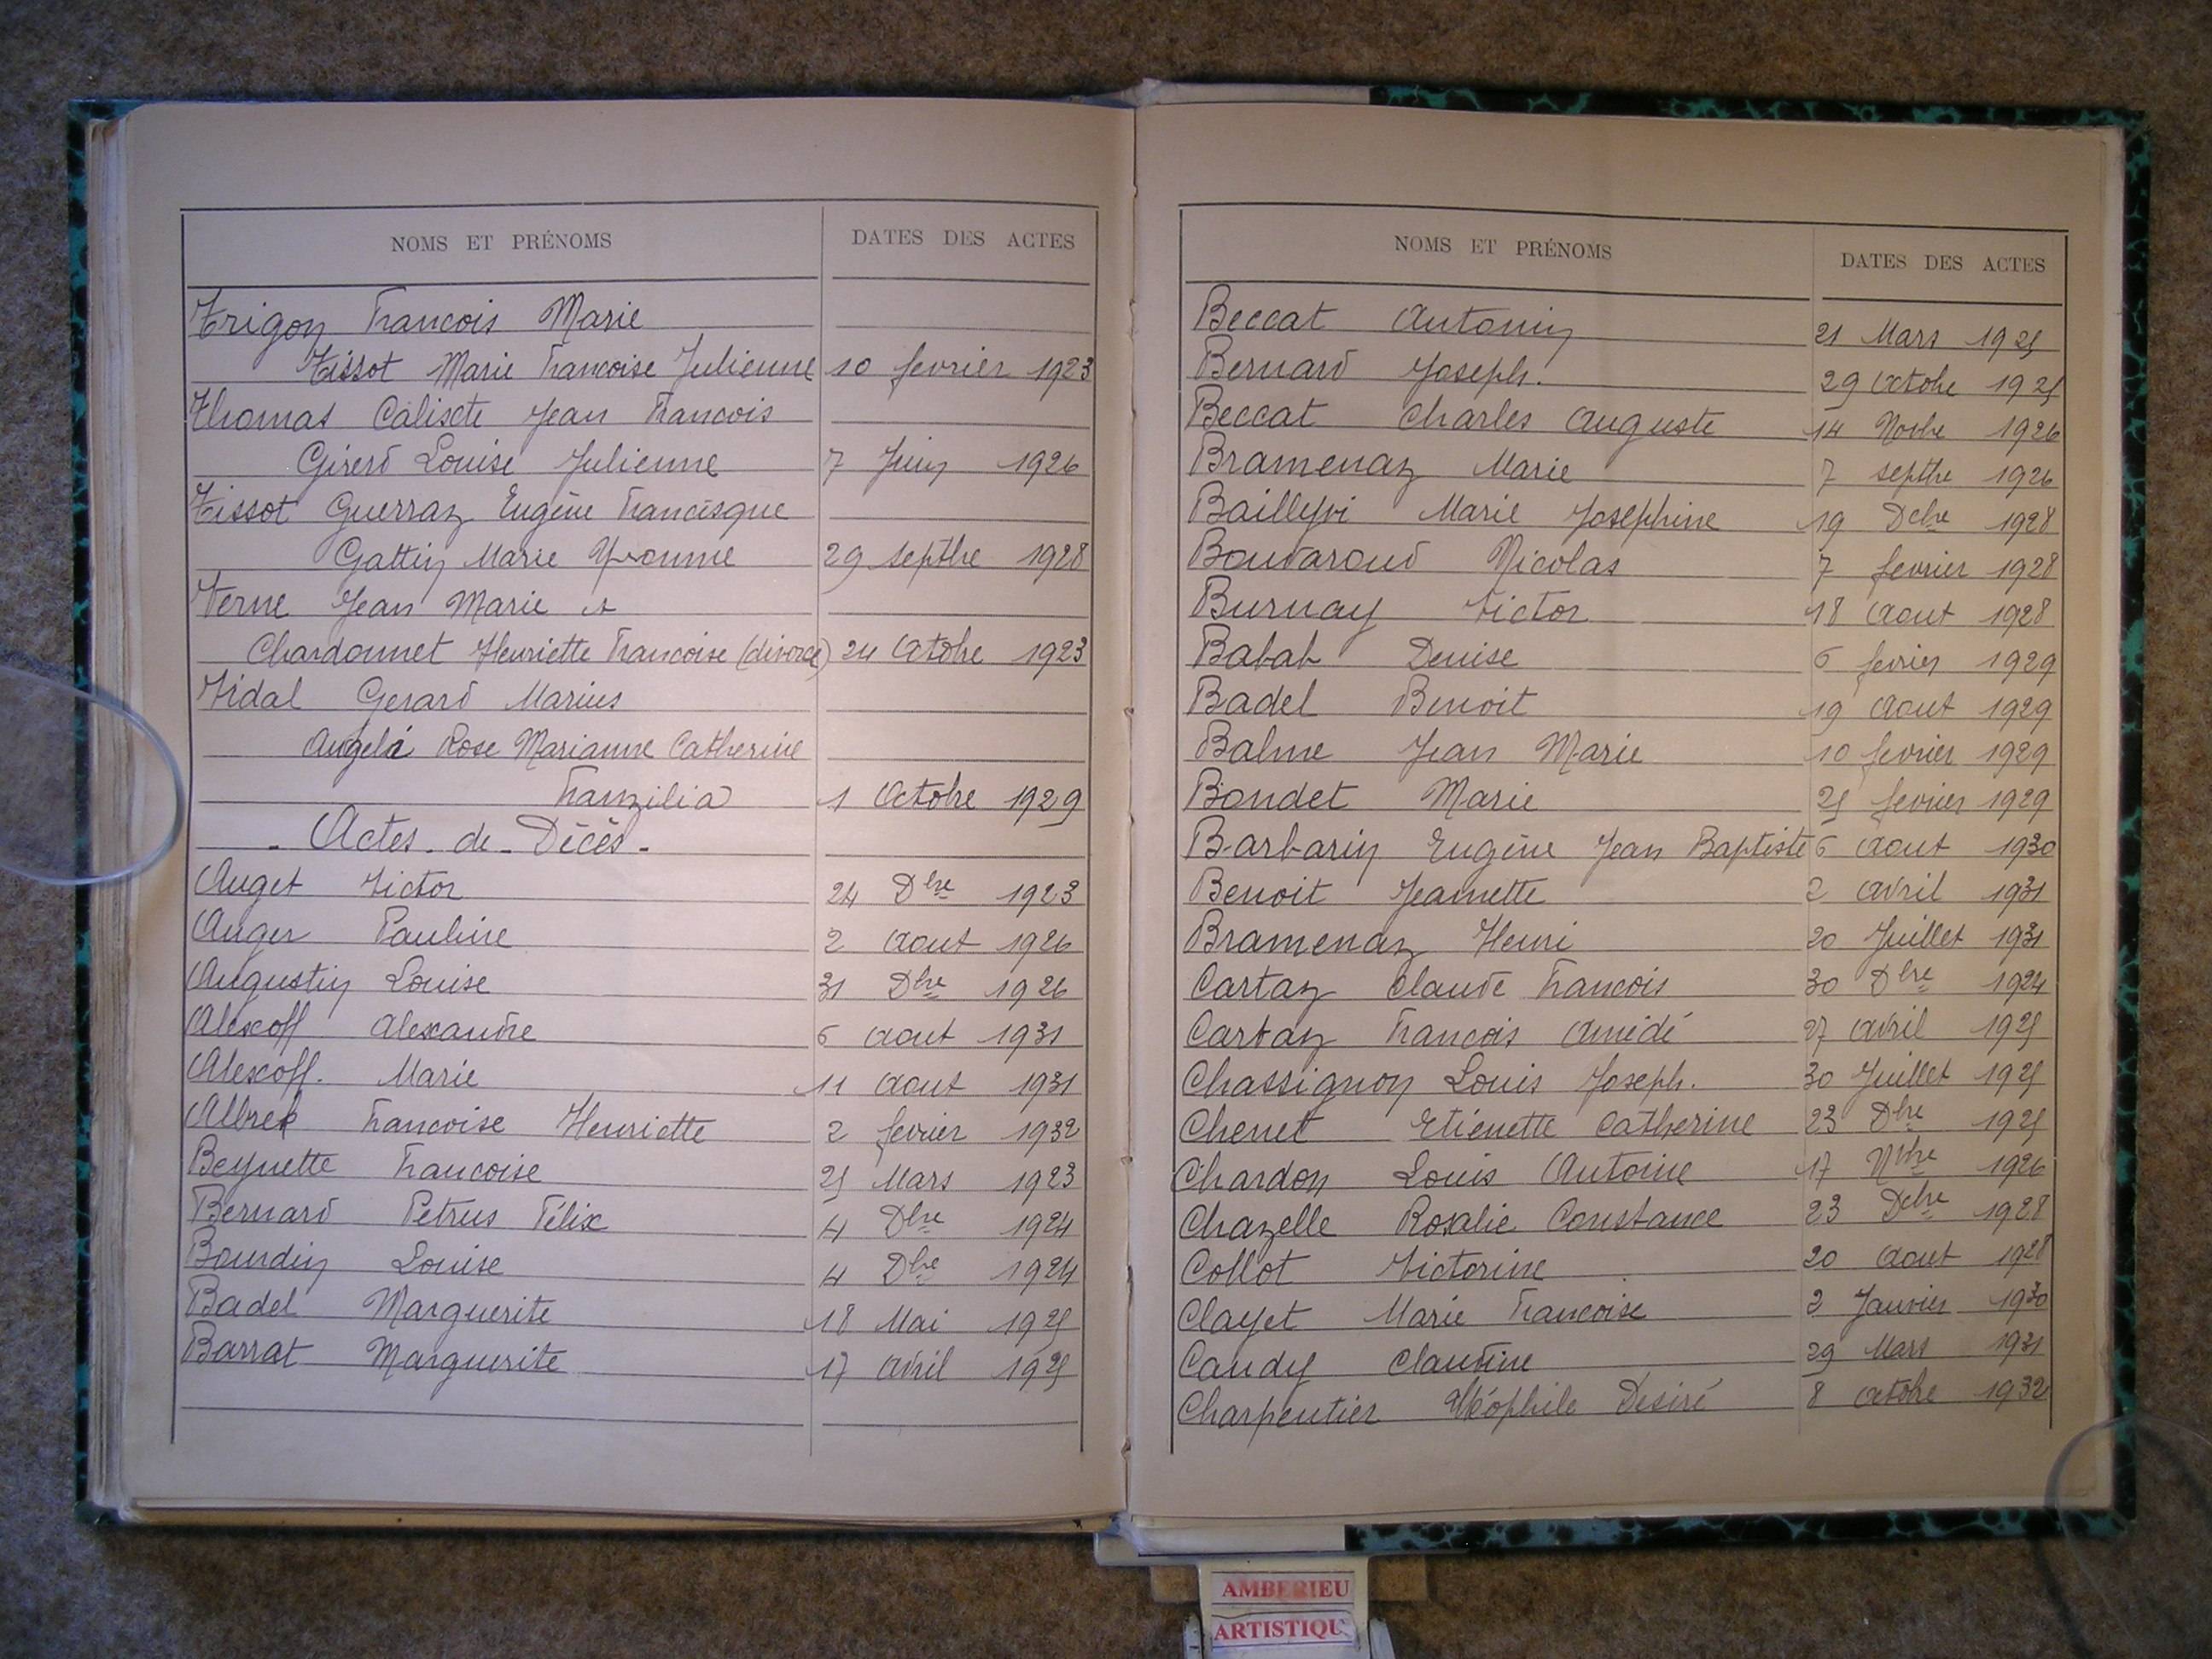 NOMS ET PRÉNOMS DATES DES ACTES
Trigon Francois Marie
Tissot Marie Francoise Julienne 10 fevrier 1923
Thomas Calixte Jean Francois
Girerd Louise Julienne 7 Juin 1926
Tissot Guerraz Eugène Francisque
Gattin Marie Yvonne 29 septbre 1928
Verne Jean Marie
Chardonnet Henriette Francoise (divorce) 24 Octobre 1923
Vidal Gerard Marius
Angeli Rose Marianne Catherine
Franzilia 1 Octobre 1929
- Actes - de - Décès -
Auget Victor 24 Dbre 1923
Auger Pauline 2 Aout 1926
Augustin Louise 31 Dbre 1926
Alexoff Alexandre 6 Aout 1931
Alexoff. Marie 11 Aout 1931
Francoise Henriette 2 fevrier 1932
Beynette Francoise 25 Mars 1923
Bernard Petrus Félix 4 Dbre 1924
Bourdin Louise 4 Dbre 1924
Badel Marguerite 18 Mai 1925
Barrat Marguerite 17 Avril 1925
NOMS ET PRÉNOMS DATES DES ACTES
Beccat Antonin 21 Mars 1925
Bernard Joseph. 29 Octobre 1925
Beccat Charles Auguste 14 Novbre 1926
Bramenaz Marie 7 septbre 1926
Marie Josephine 19 Dcbre 1928
Bouvaroud Nicolas 7 fevrier 1928
Burnay Victor 18 Aout 1928
Babab Denise 6 fevrier 1929
Badel Benoit 19 Aout 1929
Balme Jean Marie 10 fevrier 1929
Bondet Marie 25 fevrier 1929
Barbarin Eugène Jean Baptiste 6 Aout 1930
Benoit Jeannette 2 Avril 1931
Bramenaz Henri 20 Juillet 1931
Cartaz Claude Francois 30 Dbre 1924
Cartaz Francois Amédé 27 Avril 1925
Chassignon Louis Joseph. 30 Juillet 1925
Chenet Etiénette Catherine 23 Dbre 1925
Chardon Louis Antoine 17 Nbre 1926
Chazelle Rosalie Constance 23 Dcbre 1928
Collot Victorine 20 Aout 1928
Clayet Marie Francoise 2 Janvier 1930
Candy Claudine 29 Mars 1931
Charpentier Théophile Desiré 8 Octobre 1932
AMBERIEU
ARTISTIQU